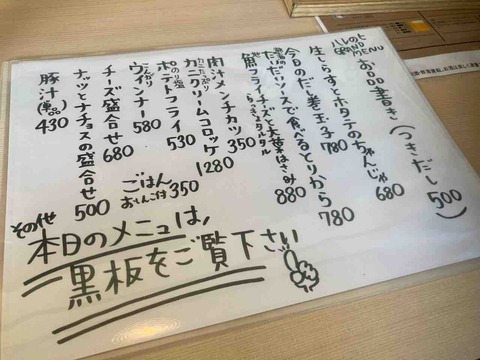 ハレのヒ
GRAND MENU
お品書き(つきだし500)
生しらすとホタテのちゃんじゃ 680
今日のだし巻玉子 780
たりだりソースで食べるとりから 780
鯵フライチーズと大葉はさみ
らっきょタルタル 880
肉汁メンチカツ 350
カニたっぷり
カニクリームコロッケ 1280
のり塩
ポテトフライ 530
こんがり
ウィンナー 580
チーズ盛合せ 680
ナッツとナチョスの盛合せ 500
豚汁(単品) 430
ごはん
おしんこ付 350
その他
本日のメニュは、
黒板をご覧下さい